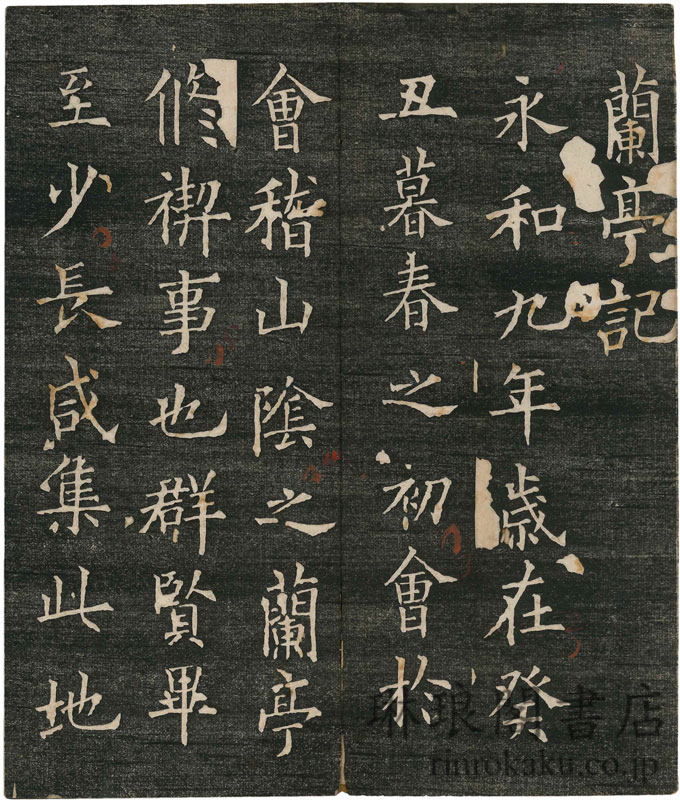 蘭亭記
永和九年歳在癸
丑暮春之初會於
會稽山陰之蘭亭
修禊事也群賢畢
至少長咸集此地
琳琅閣書店
rinrokaku.co.jp